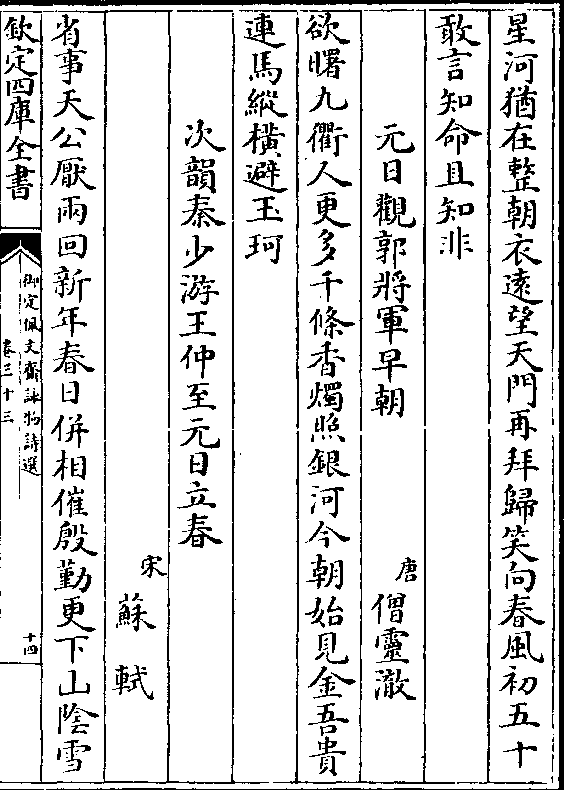 星河猶在整朝衣遠望天門再拜歸笑向春風初五十
敢言知命且知非
元日觀郭將軍早朝
唐 僧靈澈
欲曙九衢人更多千條香燭照銀河今朝始見金吾貴
連馬縱橫避玉珂
次韻秦少游王仲至元日立春
宋 蘇軾
省事天公厭兩回新年春日併相催殷勤更下山陰雪
欽定四庫全書
御定佩文齋詠物詩選
卷三十三
十四